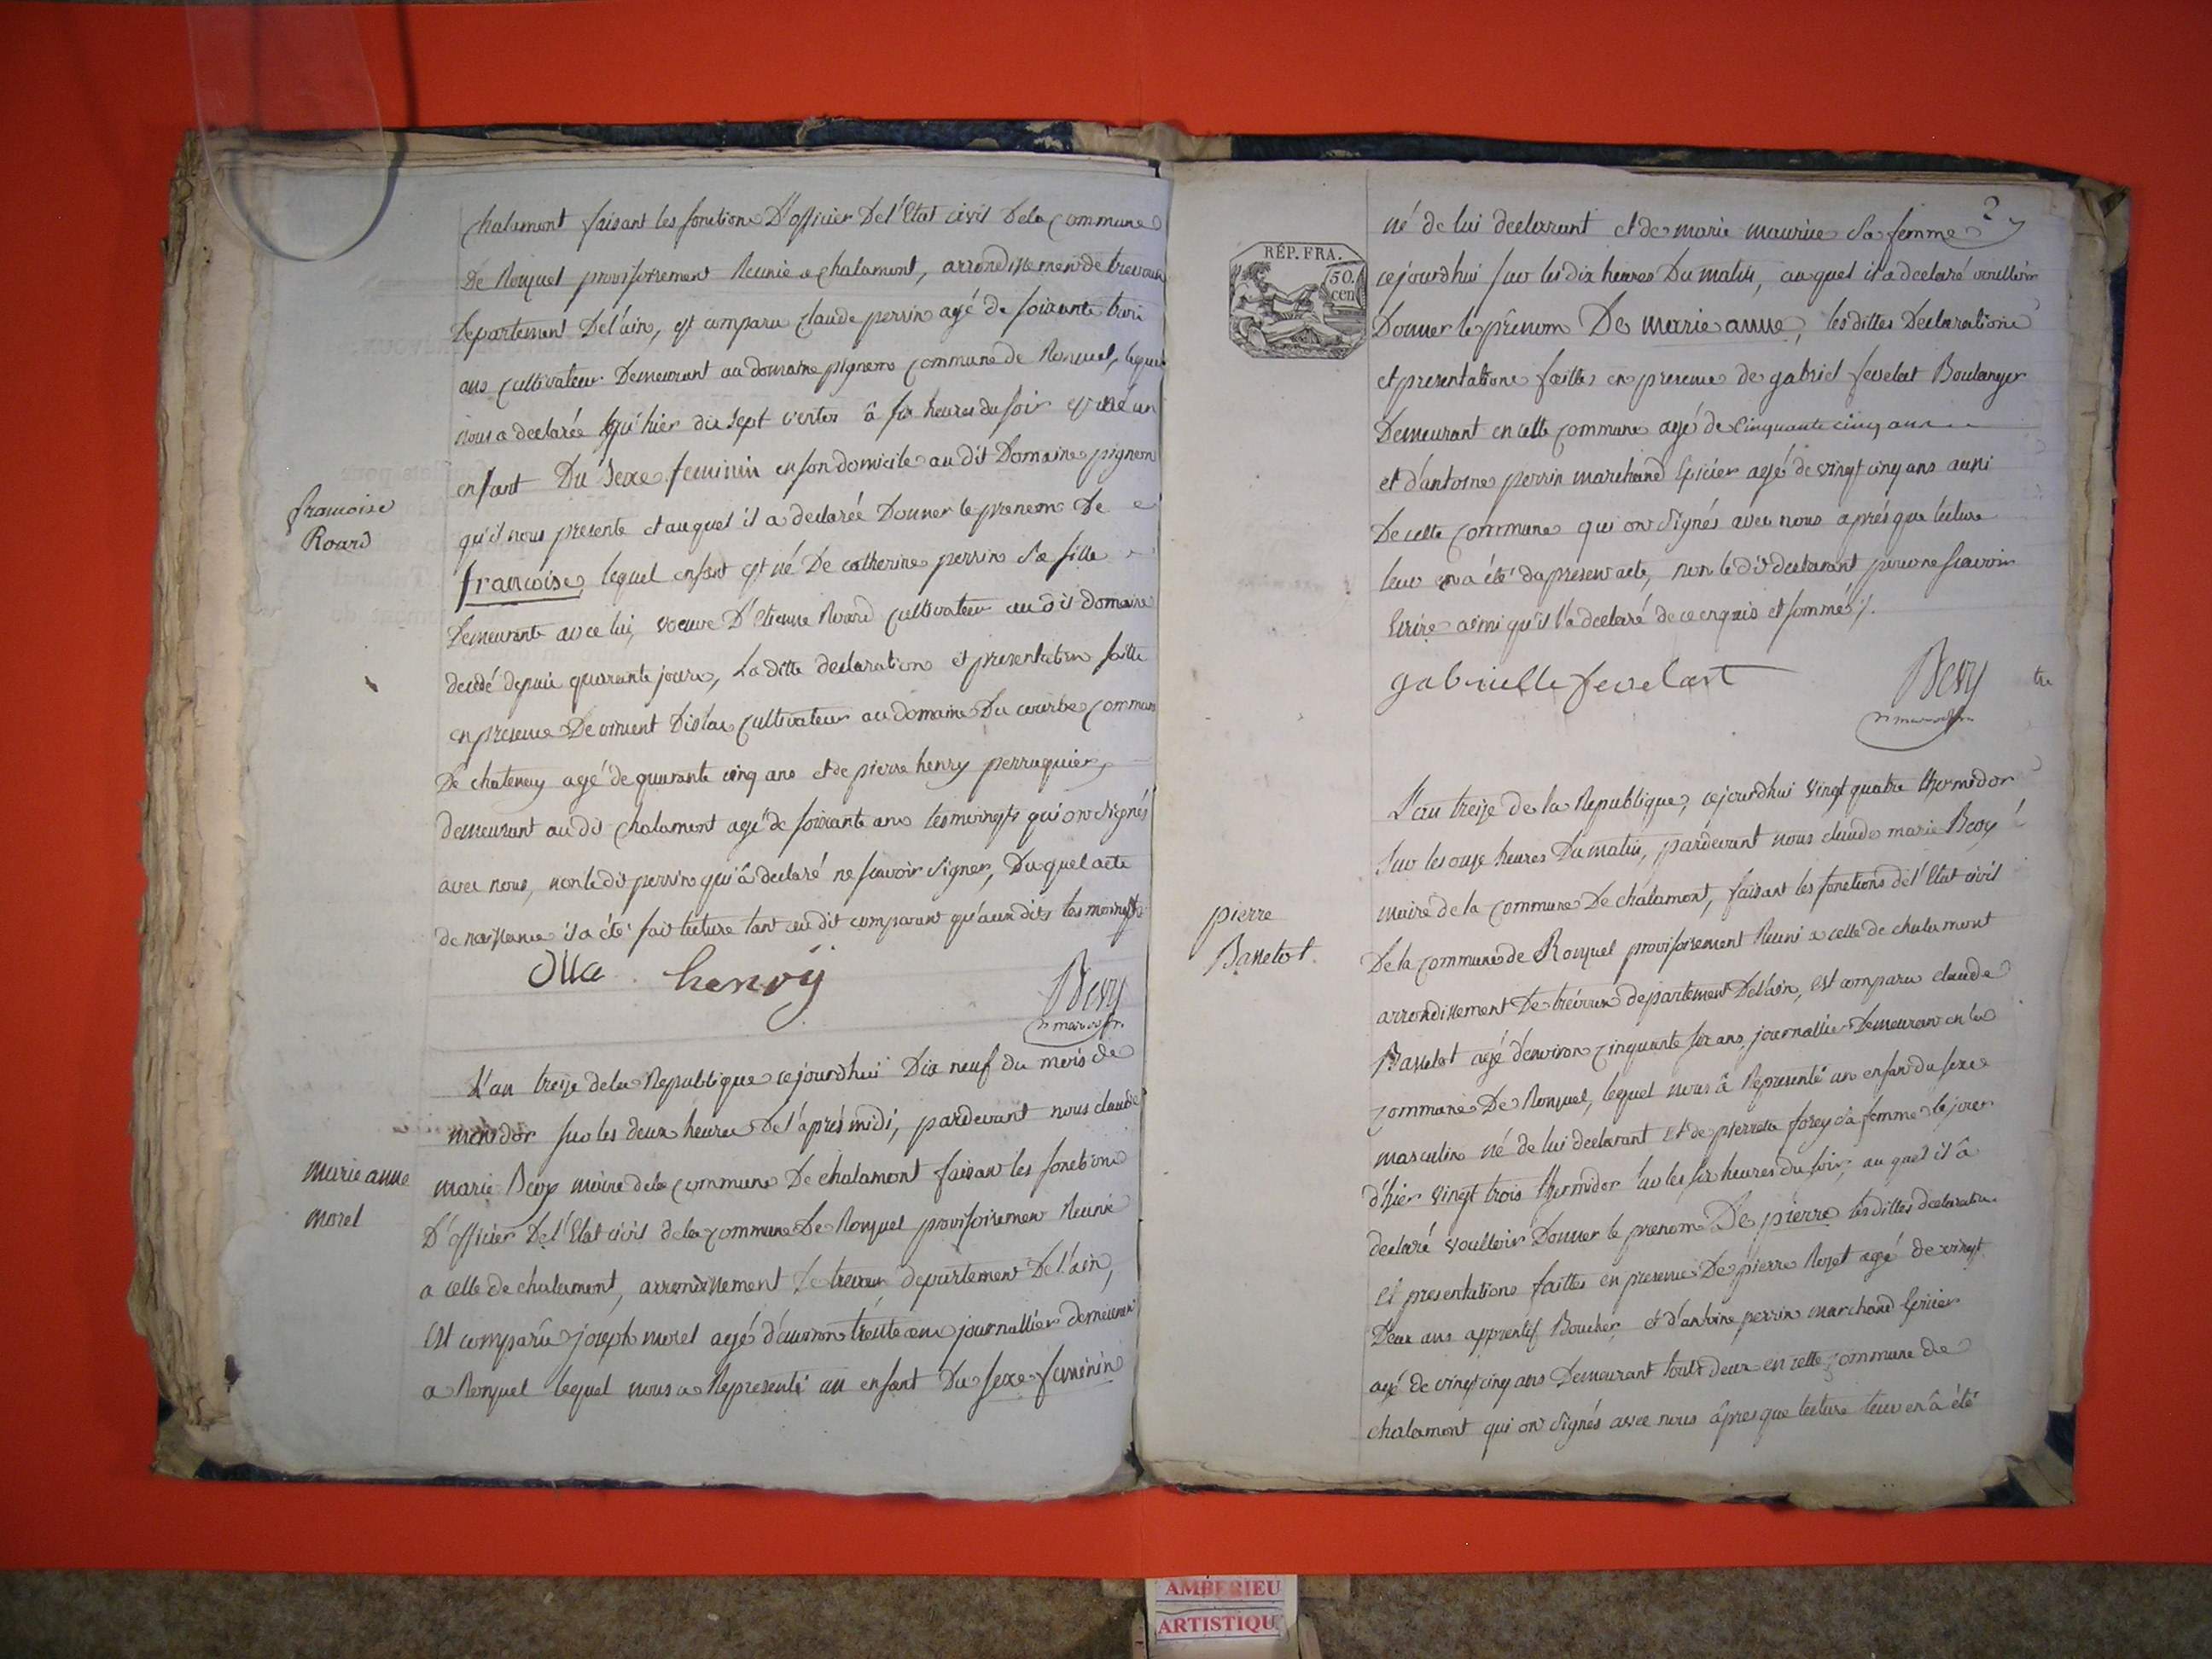 chalamont faisant les fonctions D'officier De l'Etat civil Dela commune
De Ronzuel provisoirement Reunie a chalamont, arrondissement de trevoux
Departement Del'ain, est comparu claude perrin agé de soixante trois
ans cultivateur Demeurant au domaine pignon commune de Ronzuel, lequel
nous a declarée qu'hier dix sept ventos â six heures du soir est né un
enfant Du Sexe feminin en son domicile au dit Domaine pignon
francoise
Roard
qu'il nous presente et auquel il a declarée Donner le prenom De
francoise, lequel enfant est né De catherine perrin sa fille
Demeurante avec lui, voeuve D'Etienne Roard cultivateur au dit domaine
decedé depuis quarante jours, La ditte declaration et presentation faitte
en presence De vincent cultivateur au domaine Du commune
De chateney agé de quarante cinq ans et de pierre henry perruquier,
demeurant au dit chalamont agé de soixante ans tesmoingts qui ont signés
avec nous, non le dit perrin qui â declaré ne scavoir signer, Du quel acte
de naissance il a été fait lecture tant au dit comparant qu'aux dits tesmoingts
henry
Bevy
L'an treize dela Republique cejourdhui Dix neuf du mois de
sur les deux heures De l'aprés midi, pardevant nous claude
marie anne
morel
marie Bevy maire dela commune De chalamont faisant les fonctions
D'officier De l'Etat civil dela commune De Ronzuel provisoirement Reunie
a celle de chalamont, arrondissement De trevoux departement De l'ain,
est comparu joseph morel agé d'environ trente ans journallier demeurant
a Ronzuel lequel nous a Representé un enfant Du sexe feminin
RÉP. FRA.
50.
cen
né de lui declarant et de marie maurice sa femme
cejourdhui sur les dix heures Du matin, auquel il a declaré voulloir
Donner le prênom De marie anne, les dittes Declarations
et presentations faittes en presence de gabriel fevelat Boulanger
Demeurant en cette commune agé de Cinquante cinq ans
et d'antoine perrin marchand Epicier agé de vingt cinq ans aussi
De cette commune qui ont signés avec nous aprés que lecture
leur en a été du present acte, non le dit declarant pour ne scavoir
Ecrire ainsi qu'il l'a declaré de ce enquis et sommé ./.
gabrielle fevelat
Bevy
L'an treize de la Republique, cejourdhui vingt quatre thermidor
sur les onze heures Du matin, pardevant nous claude marie Bevy
pierre
Basselot
maire de la commune De chalamont, faisant les fonctions de l'Etat civil
De la commune de Ronzuel provisoirement Reuni a celle de chalamont
arrondissement De trévoux departement Del'ain, est comparu claude
Basselot agé denviron cinquante six ans journallier Demeurant en la
commune De Ronzuel, lequel nous â Representé un enfant du sexe
masculin né de lui declarant et de pierrette forey sa femme le jour
d'hier vingt trois thermidor sur les six heures du soir, au quel il â
declaré voulloir Donner le prenom De pierre les dittes declaration
et presentations faittes en presence De pierre Rozet agé de vingt
Deux ans apprentif Boucher, et d'antoine perrin marchand Epicier
agé de vingt cinq ans Demeurant touts deux en cette commune de
chalamont qui ont signés avec nous âpres que lecture leur en â été
AMBERIEU
ARTISTIQU